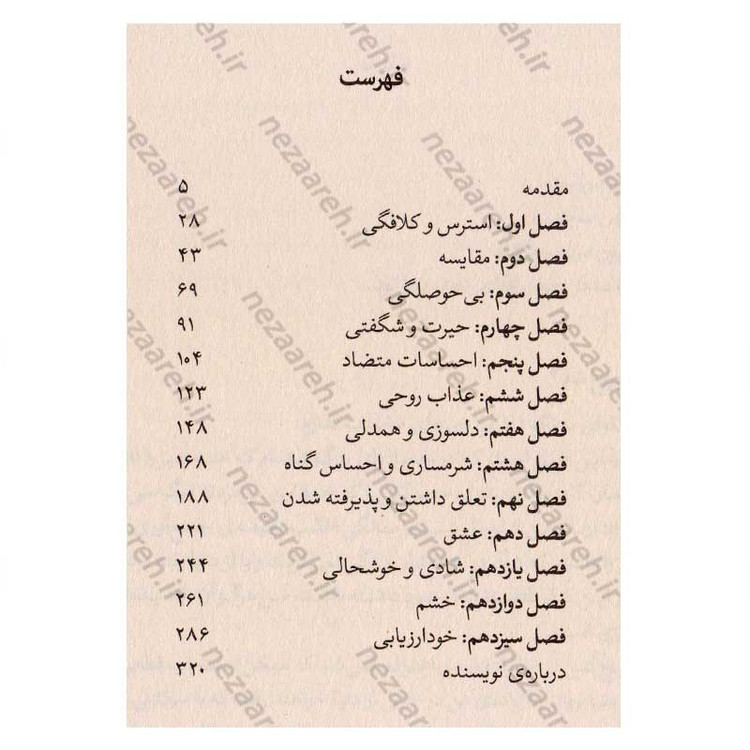 فهرست
مقدمه ۵
فصل اول: استرس و کلافگی ۲۸
فصل دوم: مقایسه ۴۳
فصل سوم: بی‌حوصلگی ۶۹
فصل چهارم: حیرت و شگفتی ۹۱
فصل پنجم: احساسات متضاد ۱۰۴
فصل ششم: عذاب روحی ۱۲۳
فصل هفتم: دلسوزی و همدلی ۱۴۸
فصل هشتم: شرمساری و احساس گناه ۱۶۸
فصل نهم: تعلق داشتن و پذیرفته شدن ۱۸۸
فصل دهم: عشق ۲۲۱
فصل یازدهم: شادی و خوشحالی ۲۴۴
فصل دوازدهم: خشم ۲۶۱
فصل سیزدهم: خودارزیابی ۲۸۶
درباره‌ی نویسنده ۳۲۰
nezaareh.ir